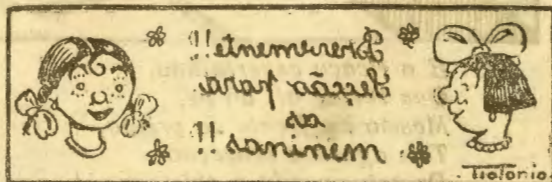 Brevemente!!
Secção para
as
meninas!!
Tiotonio